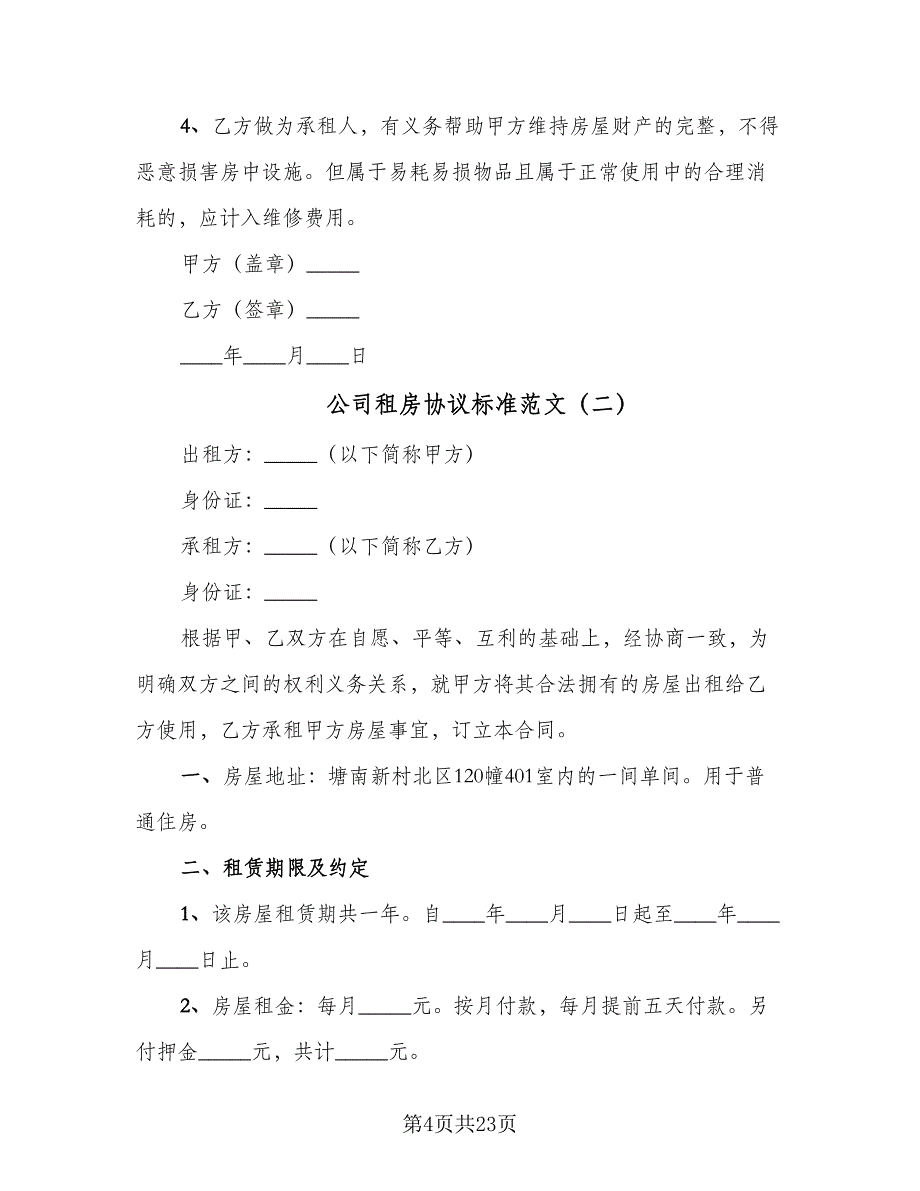 4、乙方做为承租人，有义务帮助甲方维持房屋财产的完整，不得
恶意损害房中设施。但属于易耗易损物品且属于正常使用中的合理消
耗的，应计入维修费用。
甲方（盖章）_____
乙方（签章）_____
____年____月____日
公司租房协议标准范文（二）
出租方：_____（以下简称甲方）
身份证：_____
承租方：_____（以下简称乙方）
身份证：_____
根据甲、乙双方在自愿、平等、互利的基础上，经协商一致，为
明确双方之间的权利义务关系，就甲方将其合法拥有的房屋出租给乙
方使用，乙方承租甲方房屋事宜，订立本合同。
一、房屋地址：塘南新村北区120幢401室内的一间单间。用于普
通住房。
二、租赁期限及约定
1、该房屋租赁期共一年。自____年____月____日起至____年____
月____日止。
2、房屋租金：每月_____元。按月付款，每月提前五天付款。另
付押金_____元，共计_____元。
第4页共23页